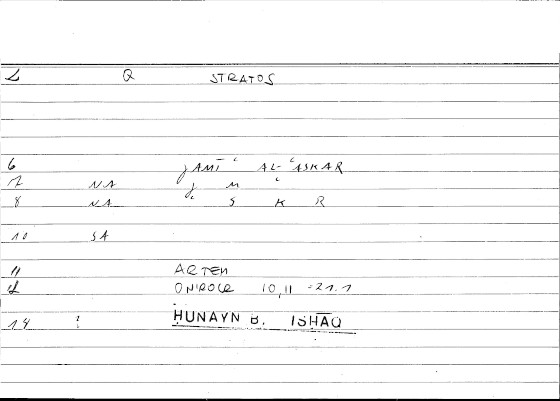 L Q STRATOS
6 ǧAMĪʿ AL-ʿASKAR
7 NA ǧ M ʿ
8 NA ʿ S K R
10 SA
11 ARTEM
12 ONIROCR 10,11 =21.1
14 : ḤUNAYN B. ISḤĀQ